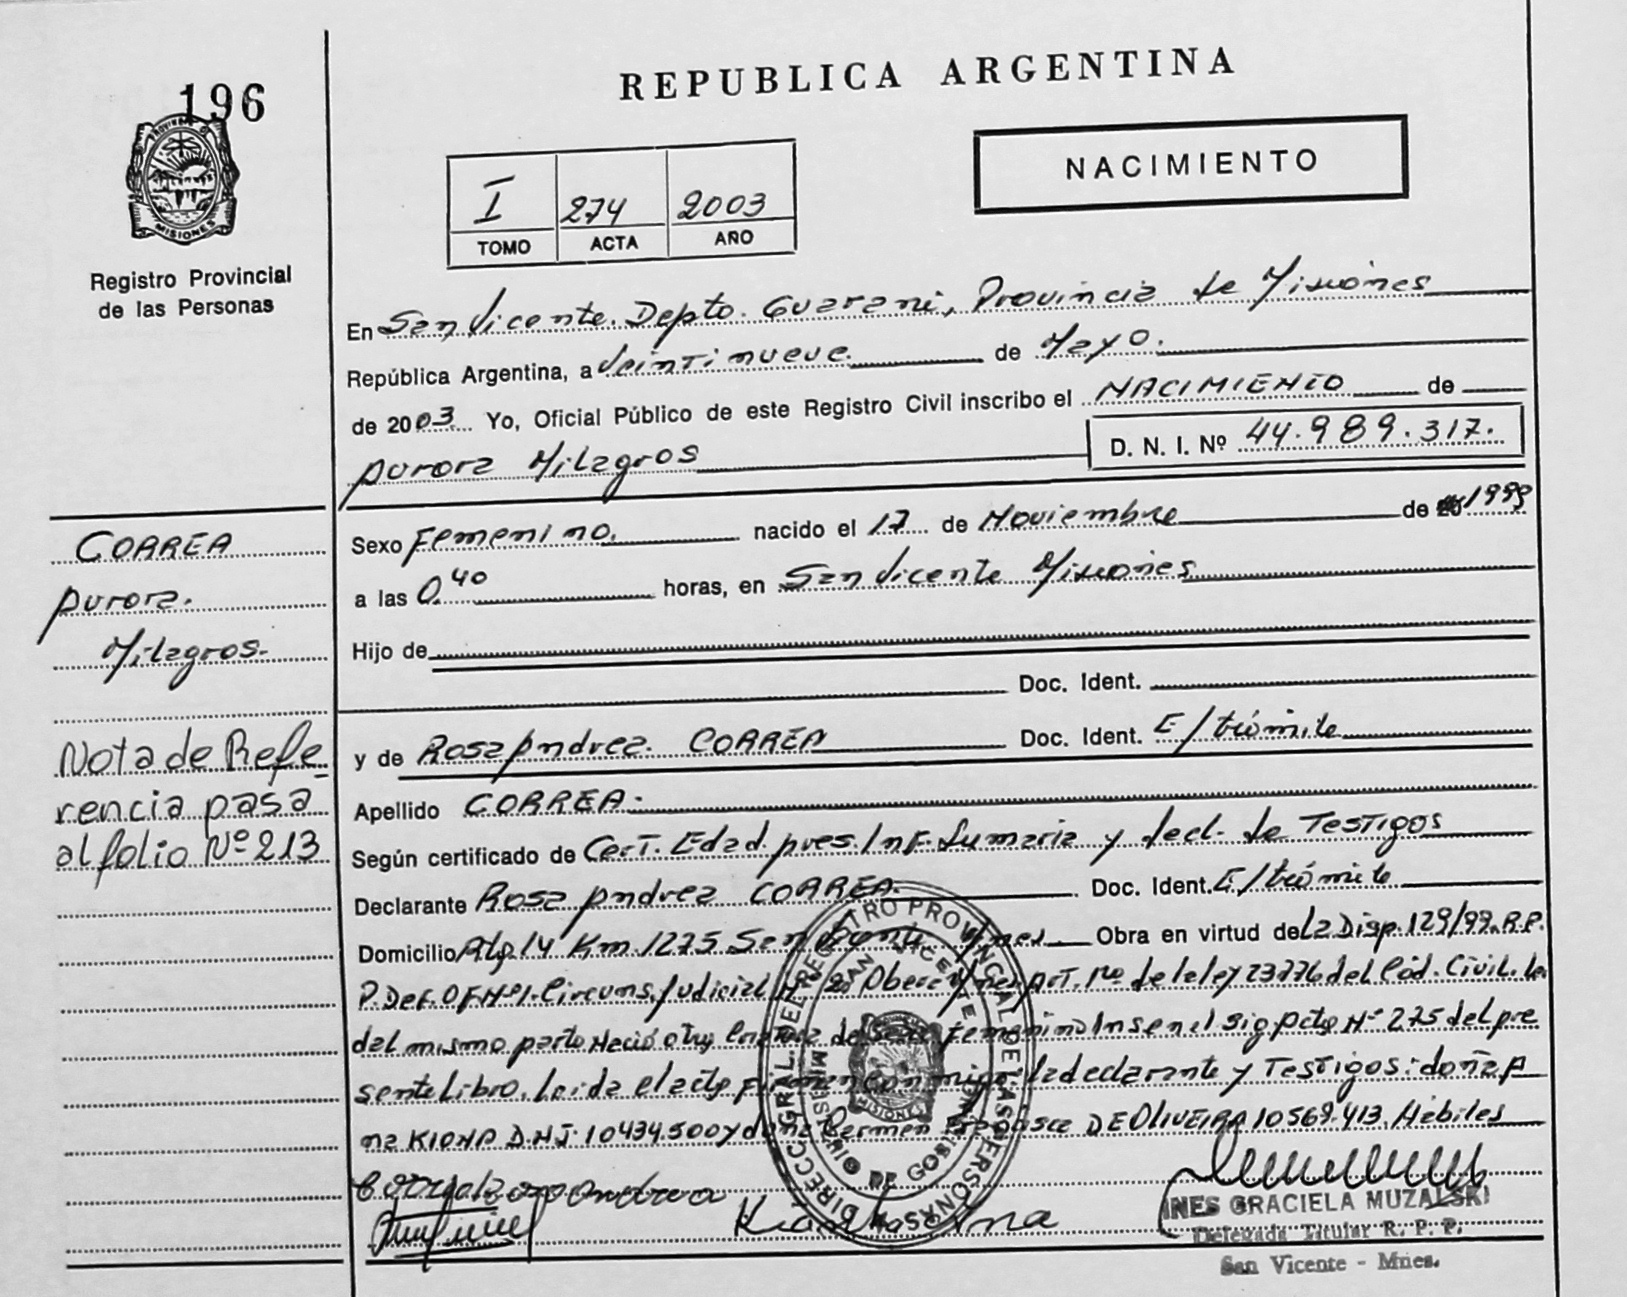 REPUBLICA ARGENTINA
196
PROVINCIA D MISIONES
Registro Provincial
de las Personas
NACIMIENTO
I 274 2003
TOMO ACTA AÑO
En San Vicente. Depto. Guarani, Provincia de Misiones
República Argentina, a Veintinueve de Mayo.
de 2003. Yo, Oficial Público de este Registro Civil inscribo el NACIMIENTO de
Aurora Milagros D. N. I. Nº 44.989.317.
Sexo Femenino. nacido el 17 de Noviembre de 1999
a las 0.40 horas, en San Vicente Misiones
Hijo de
Doc. Ident.
y de Rosa Andrea. CORREA Doc. Ident. E/trámite
Apellido CORREA.
Según certificado de Cert. Edad. pres. Inf. Sumaria y decl. de Testigos
Declarante Rosa Andrea CORREA. Doc. Ident. E/trámite
Domicilio Alg. 14 Km. 1275 San Vicente Mnes. Obra en virtud de La Disp. 129/99. R.P.
P. Def. Of. Nº 1. Circuns. Judicial Nº 2 Obera Mnes Art. 1º de la ley 23776 del Cód. Civil. de
del mismo parto Nació otra de Sexo Femenino Ins en el Sig Acta Nº 275 del pre
sente Libro. Leida el acta firman conmigo. la declarante y Testigos: doña A
na KIOHA D.N.I. 10434.500 y doña Carmen DE OLIVEIRA 10569.413. Hábiles
CORREA
Aurora.
Milagros.
Nota de Refe
rencia pasa
al folio Nº 213
DIRECC. GRAL. DEL REGISTRO PROVINCIAL DE LAS PERSONAS
SAN VICENTE
MINISTERIO DE GOBIERNO
MISIONES
Ana
INES GRACIELA MUZALSKI
Delegada Titular R. P. P.
San Vicente - Mnes.